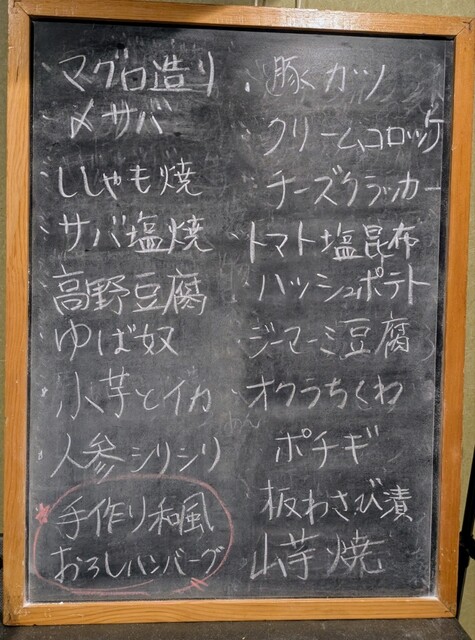 マグロ造り
〆サバ
ししゃも焼
サバ塩焼
高野豆腐
ゆば奴
小芋とイカ
人参シリシリ
手作り和風
おろしハンバーグ
豚カツ
クリームコロッケ
チーズクラッカー
トマト塩昆布
ハッシュポテト
ジーマーミ豆腐
オクラちくわ
ポチギ
板わさび漬
山芋焼